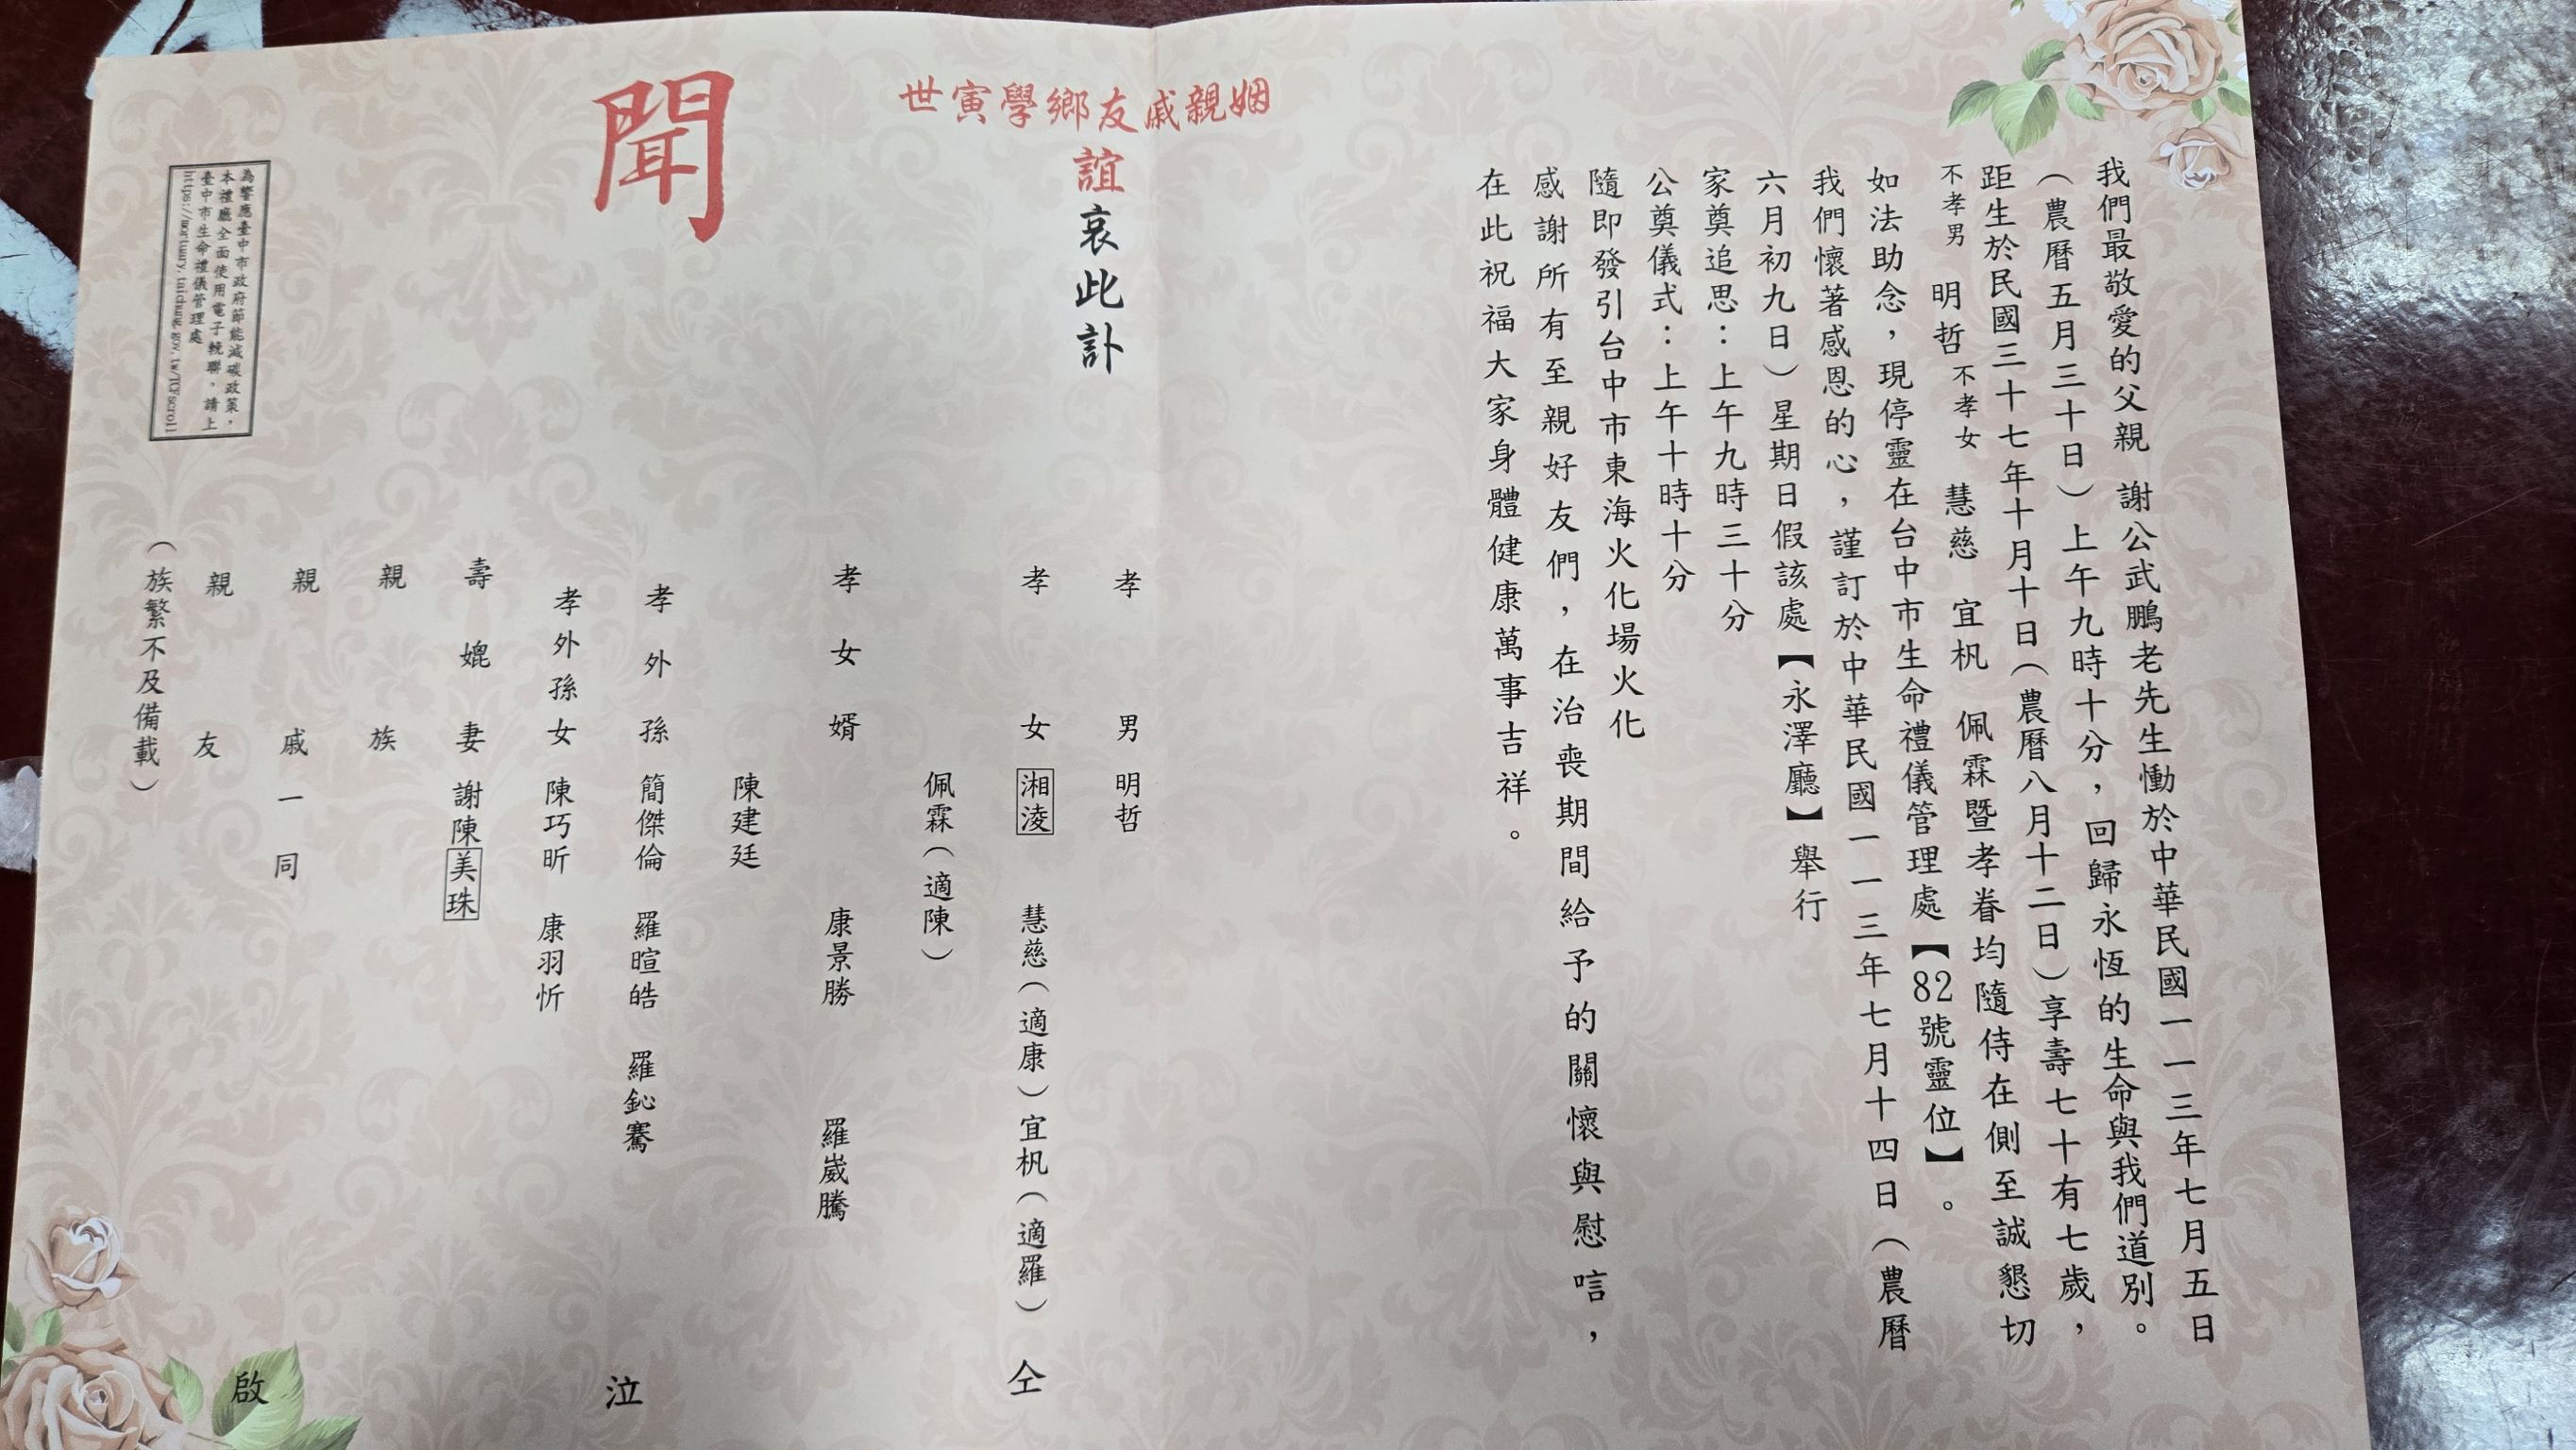 我們最敬愛的父親 謝公武鵬老先生慟於中華民國一一三年七月五日
（農曆五月三十日）上午九時十分，回歸永恆的生命與我們道別。
距生於民國三十七年十月十日（農曆八月十二日）享壽七十有七歲，
不孝男 明哲 不孝女 慧慈 宜枫 佩霖暨孝眷均隨侍在側至誠懇切
如法助念，現停靈在台中市生命禮儀管理處【82號靈位】。
我們懷著感恩的心，謹訂於中華民國一一三年七月十四日（農曆
六月初九日）星期日假該處【永澤廳】舉行
家奠追思：上午九時三十分
公奠儀式：上午十時十分
隨即發引台中市東海火化場火化
感謝所有至親好友們，在治喪期間給予的關懷與慰唁，
在此祝福大家身體健康萬事吉祥。
姻親戚友鄉學寅世
誼哀此訃
聞
孝男 明哲
孝女 湘淩 慧慈（適康）宜枫（適羅）
佩霖（適陳）
孝女婿 康景勝 羅崴騰
陳建廷
孝外孫 簡傑倫 羅暄皓 羅鈊騫
孝外孫女 陳巧昕 康羽忻
壽媲妻 謝陳美珠
親族
親戚一同
親友
（族繁不及備載）
仝
泣
啟
為響應臺中市政府節能減碳政策，
本禮廳全面使用電子輓聯，請上
臺中市生命禮儀管理處
https://mortuary.taichung.gov.tw/TCFscroll